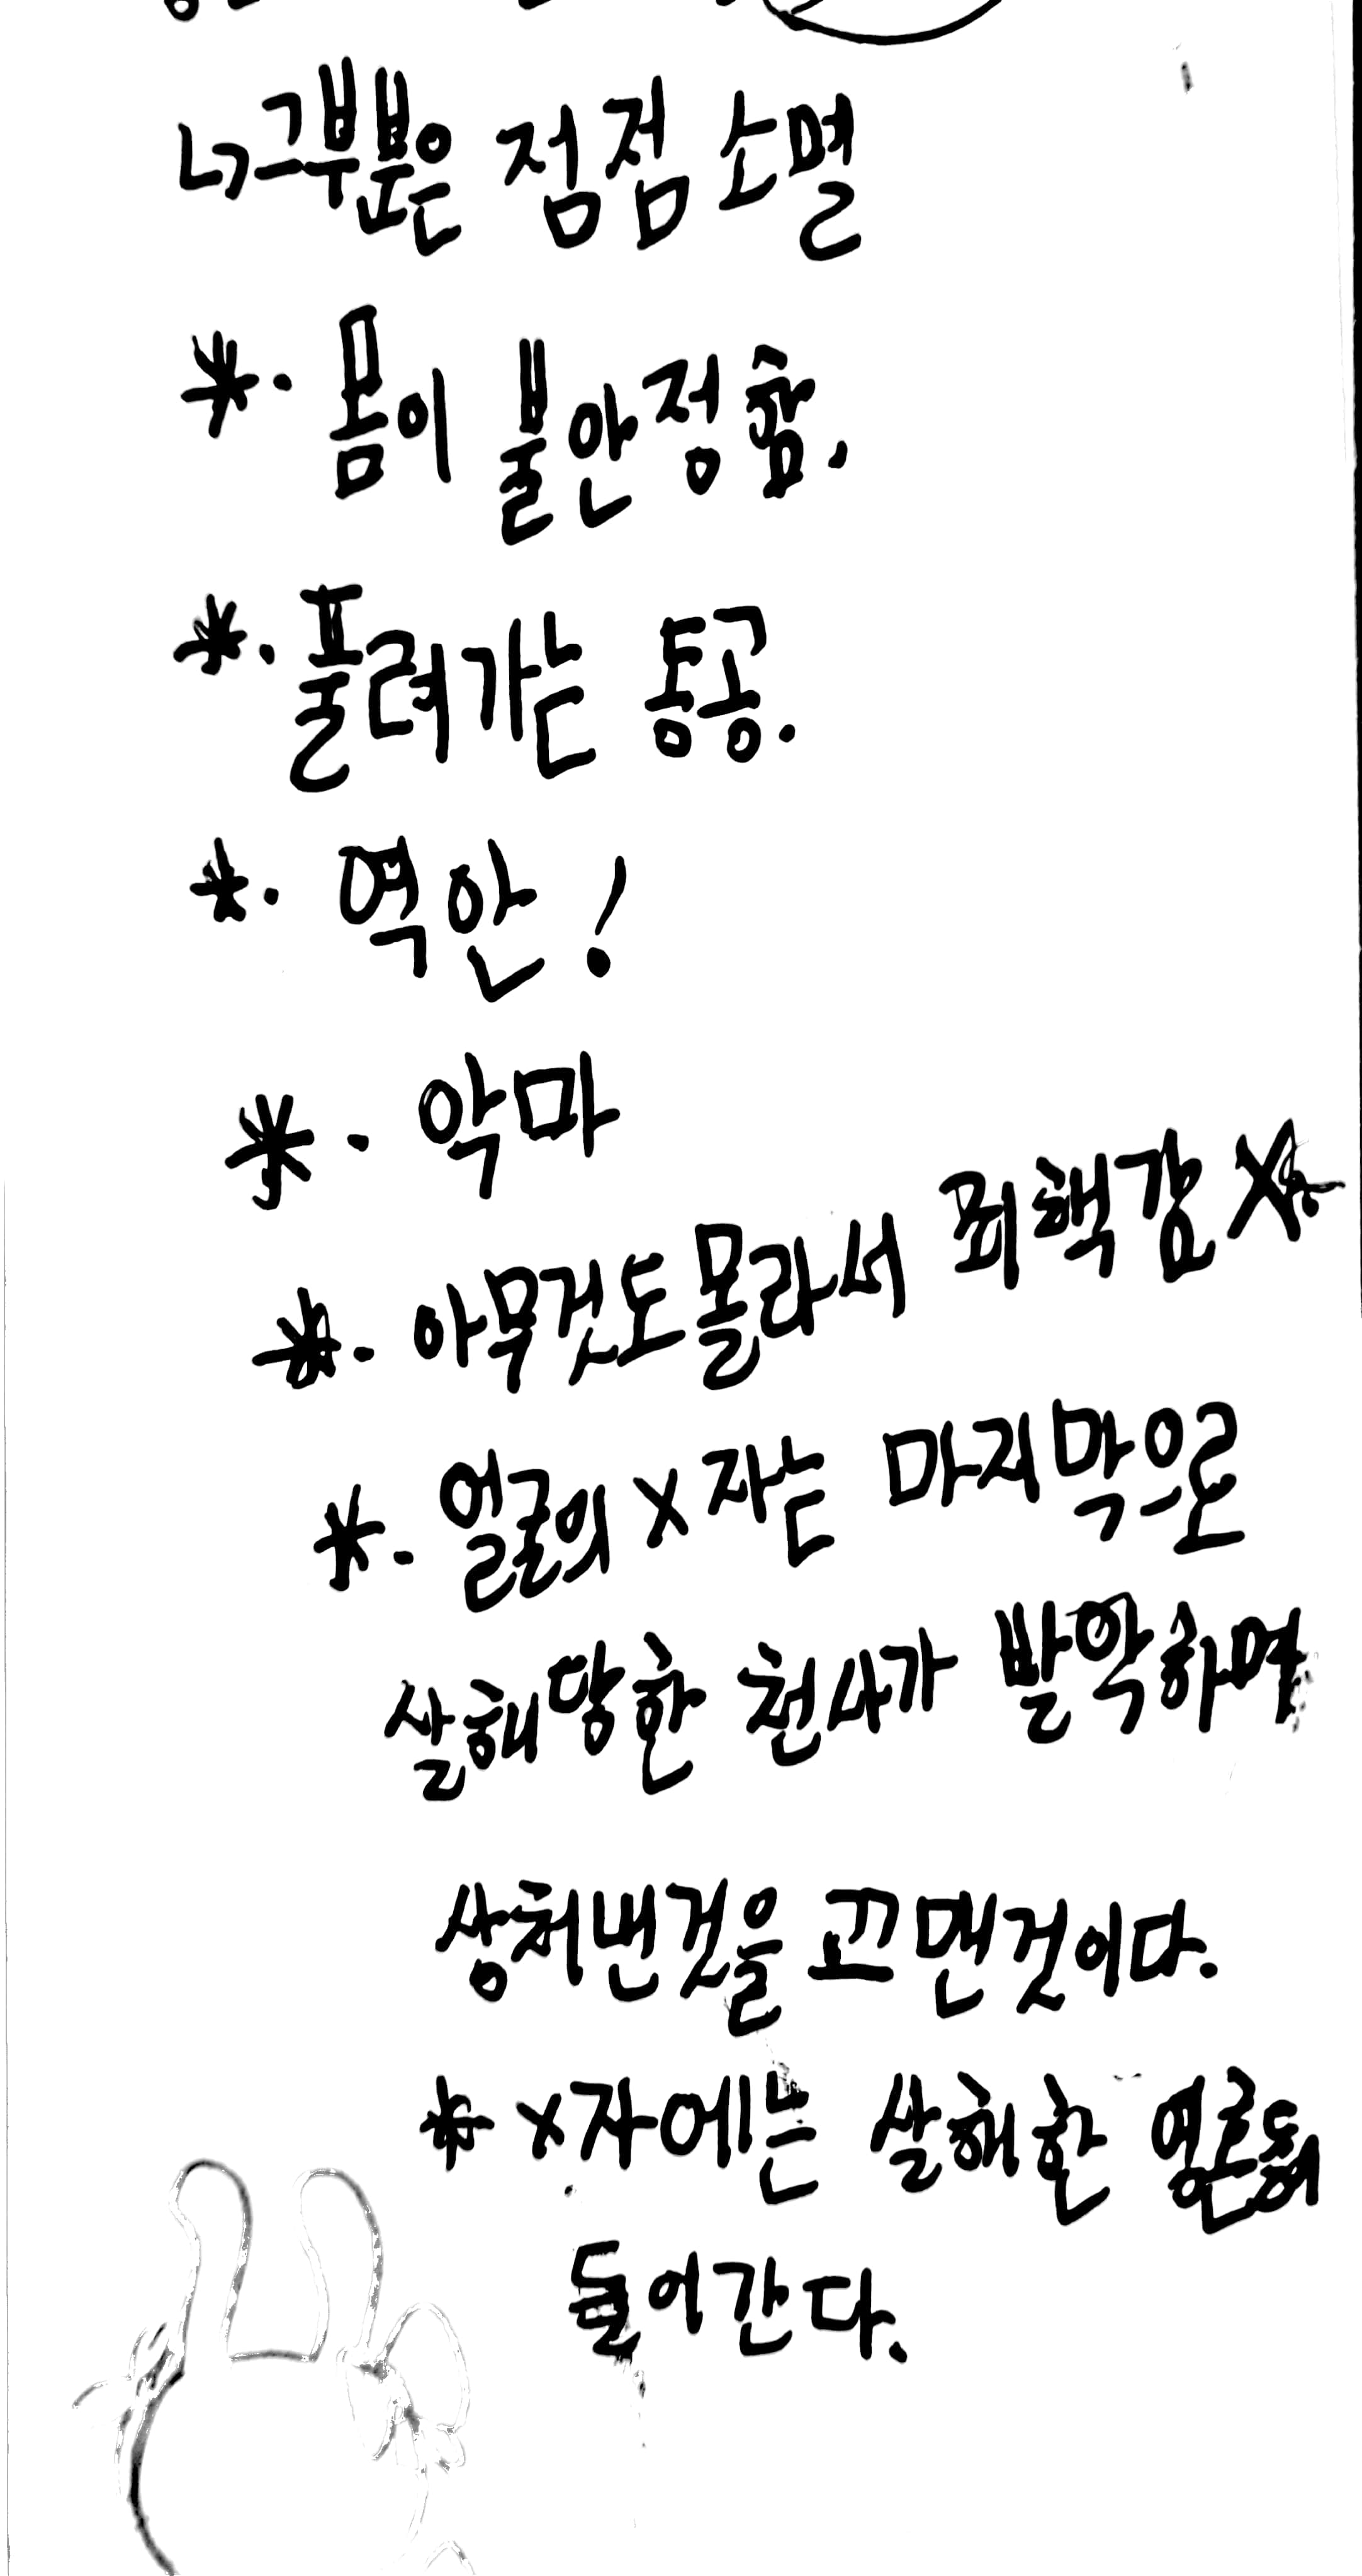 ↳그부분은 점점 소멸
*. 몸이 불안정함.
*. 풀려가는 동공.
*. 역안!
*. 악마
*. 아무것도 몰라서 죄책감 X
*. 얼굴의 X자는 마지막으로
살해당한 천사가 발악하며
상처낸것을 꼬맨것이다.
* X자에는 살해한 영혼들이
들어간다.